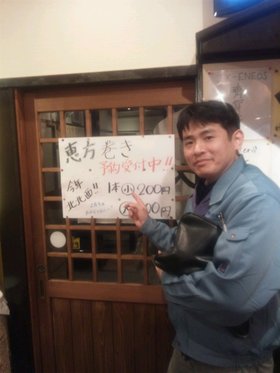 恵方巻き
予約受付中!!
今年
北北西!! 1本 小 200円
大 00円
ENEOS